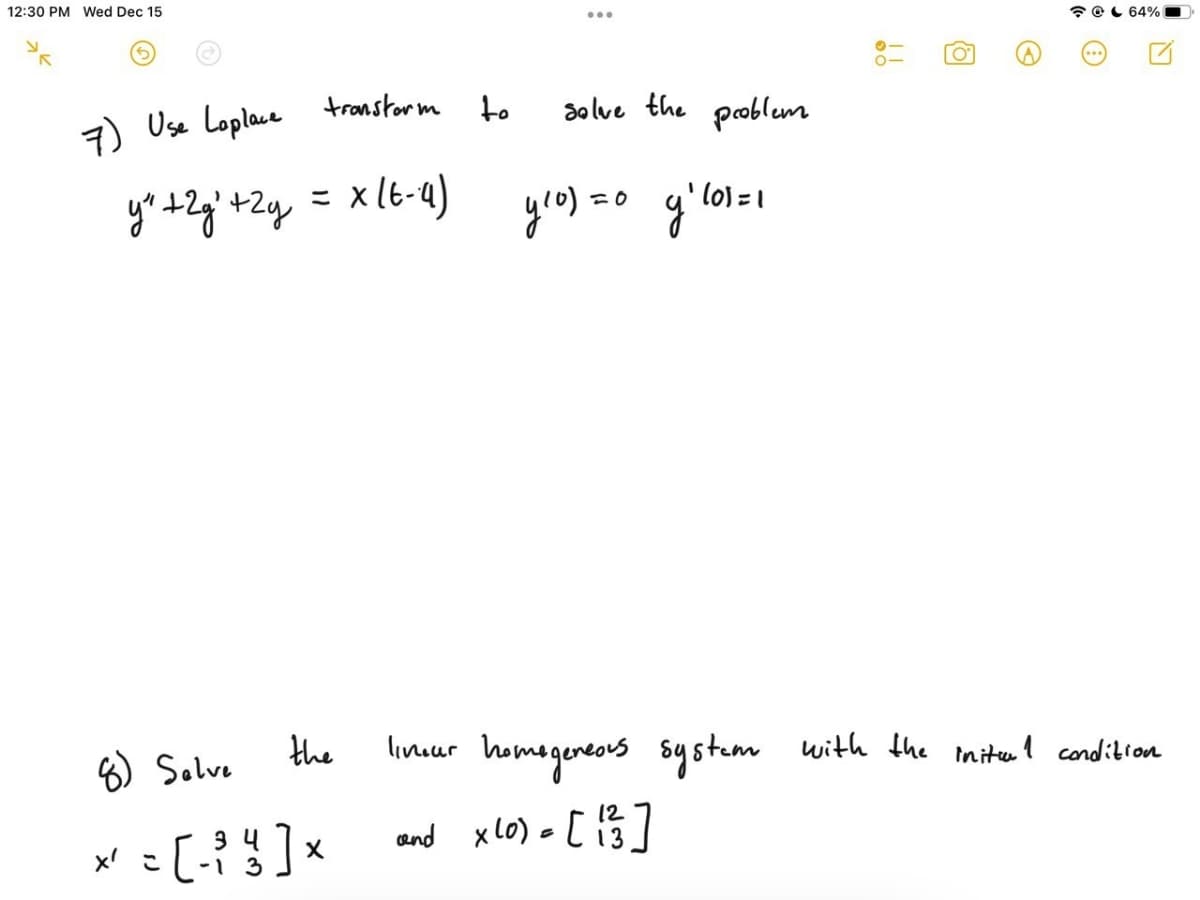 12:30 PM Wed Dec 15 64%
7) Use Laplace transform to solve the problem
y'' +2y' +2y = x (t-4) y(0) =0 y'(0)=1
8) Solve the linear homogeneous system with the initial condition
x' = [ 3 4
-1 3 ] x and x(0) = [ 12
13 ]